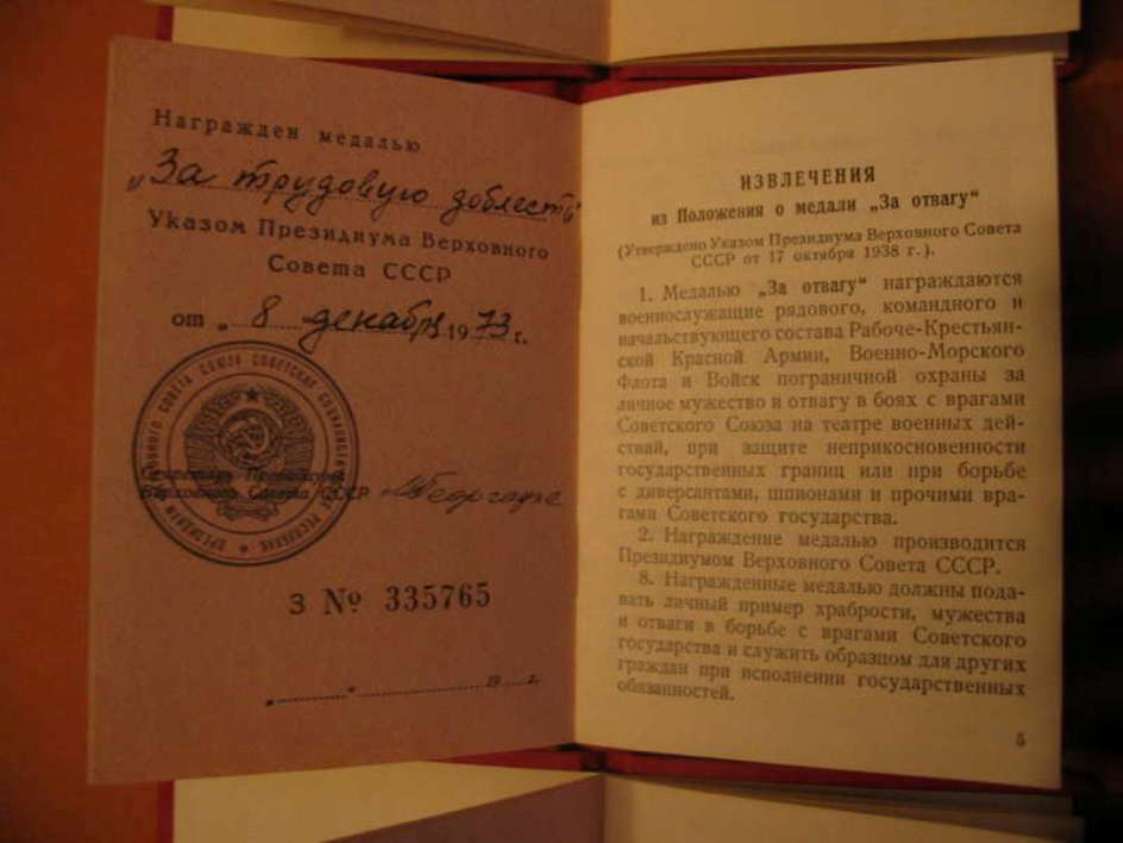 Награжден медалью
„За трудовую доблесть“
Указом Президиума Верховного
Совета СССР
от „ 8 декабря 1973 г.
ПРЕЗИДИУМ ВЕРХОВНОГО СОВЕТА СОЮЗА СОВЕТСКИХ СОЦИАЛИСТИЧЕСКИХ РЕСПУБЛИК
Секретарь Президиума
Верховного Совета СССР
З № 335765
„ “ 19 г.
ИЗВЛЕЧЕНИЯ
из Положения о медали „За отвагу“
(Утверждено Указом Президиума Верховного Совета
СССР от 17 октября 1938 г.).
1. Медалью „За отвагу“ награждаются
военнослужащие рядового, командного и
начальствующего состава Рабоче-Крестьян-
ской Красной Армии, Военно-Морского
Флота и Войск пограничной охраны за
личное мужество и отвагу в боях с врагами
Советского Союза на театре военных дей-
ствий, при защите неприкосновенности
государственных границ или при борьбе
с диверсантами, шпионами и прочими вра-
гами Советского государства.
2. Награждение медалью производится
Президиумом Верховного Совета СССР.
8. Награжденные медалью должны пода-
вать личный пример храбрости, мужества
и отваги в борьбе с врагами Советского
государства и служить образцом для других
граждан при исполнении государственных
обязанностей.
5